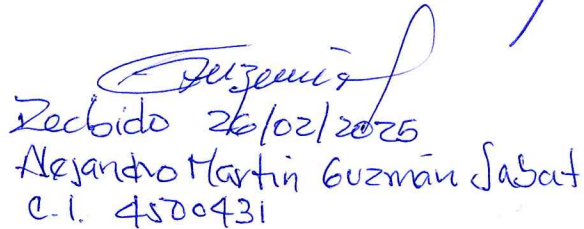 Recibido 26/02/2025
Alejandro Martin Guzmán Sabat
C.I. 4500431